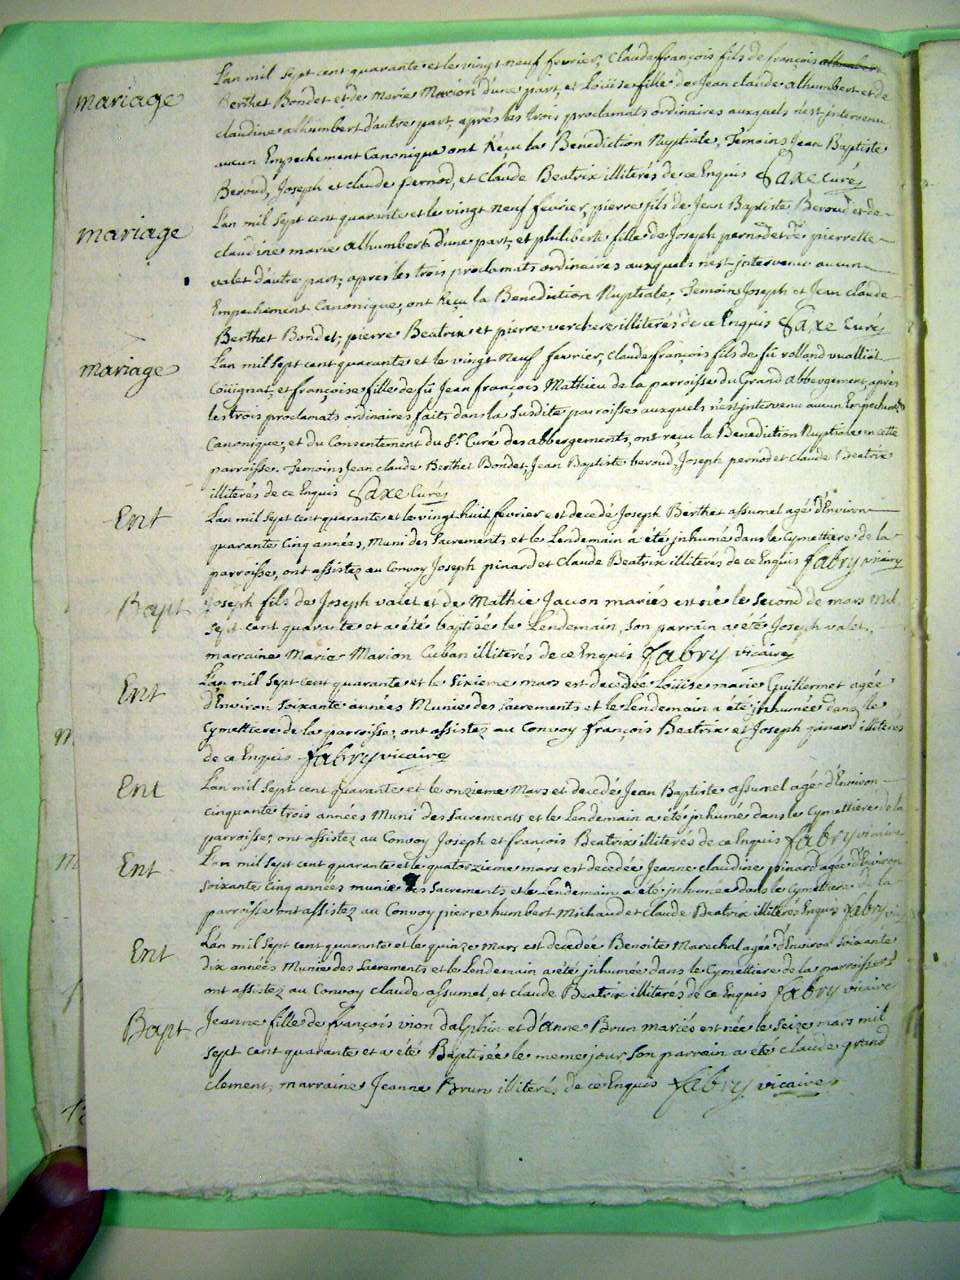 mariage
L'an mil sept cent quarante et le vingt neuf fevrier, Claude françois fils de françois
Berthet Bondet et de Marie Marion d'une part, et Loüise fille de Jean claude alhumbert et de
claudine alhumbert d'autre part, aprés les trois proclamats ordinaires auxquels n'est jntervenu
aucun Empechement Canonique ont Reçu la Benediction Nuptiale, Temoins Jean Baptiste
Beroud, Joseph et claude pernod, et Claude Beatrix illiterés de ce Enquis Saxe Curé
mariage
L'an mil sept cent quarante et le vingt neuf fevrier, pierre fils de Jean Baptiste Beroud et de
claudine marie alhumbert d'une part, et philiberte fille de Joseph pernod et de pierrette
valet d'autre part, aprés les trois proclamats ordinaires auxquels n'est jntervenu aucun
Empechement Canonique, ont Reçu la Benediction Nuptiale, Temoins Joseph et Jean claude
Berthet Bondet, pierre Beatrix et pierre verchere illiterés de ce Enquis Saxe Curé
mariage
L'an mil sept cent quarante et le vingt neuf fevrier, Claude françois fils de fû rolland vualliat
Coüignat, et françoise fille de fû Jean françois Mathieu de la parroisse du Grand abbergement, aprés
les trois proclamats ordinaires faits dans la susdite parroisse auxquels n'est jntervenu aucun Empechement
Canonique, et du Consentement du Sr. Curé des abbergements, ont reçu la Benediction Nuptiale en cette
parroisse. Temoins Jean claude Berthet Bondet, Jean Baptiste beroud, Joseph pernod et claude Beatrix
illiterés de ce Enquis Saxe Curé
Ent
L'an mil sept cent quarante et le vingt huit fevrier est decedé Joseph Berthet assumel agé d'Environ
quarante cinq années, Muni des Sacrements et le Lendemain a été jnhumé dans le Cymettiere de la
parroisse, ont assistez au Convoy Joseph pinard et Claude Beatrix illiterés de ce Enquis fabry vicaire
Bapt
Joseph fils de Joseph valet et de Mathie Jacon mariés est né le second de mars mil
sept cent quarante et a été baptisé le Lendemain, son parrain a été Joseph valet,
marraine Marie Marion Cuban illiterés de ce Enquis fabry vicaire
Ent
L'an mil sept cent quarante et le sixieme mars est decedée Loüise marie Guillermet agée
d'Environ soixante années Munie des sacrements et le Lendemain a été jnhumée dans le
Cymettiere de la parroisse, ont assistez au Convoy françois Beatrix et Joseph pinard illiterés
de ce Enquis fabry vicaire
Ent
L'an mil sept cent quarante et le onzieme Mars est decedé Jean Baptiste assumel agé d'Environ
cinquante trois années Muni des sacrements et le Lendemain a été jnhumé dans le Cymettiere de la
parroisse, ont assistez au Convoy Joseph et françois Beatrix illiterés de ce Enquis fabry vicaire
Ent
L'an mil sept cent quarante et le quatorzieme mars est decedée Jeanne claudine pinard agée d'Environ
soixante cinq années munie des sacrements et le Lendemain a été jnhumée dans le Cymettiere de la
parroisse ont assistez au Convoy pierre humbert Michaud et claude Beatrix illiterés Enquis fabry
Ent
L'an mil sept cent quarante et le quinze Mars est decedée Benoite Marechal agée d'Environ soixante
dix années Munie des Sacrements et le Lendemain a été jnhumée dans le Cymettiere de la parroisse
ont assistez au Convoy claude assumel, et claude Beatrix illiterés de ce Enquis fabry vicaire
Bapt
Jeanne fille de françois vion dalphin et d'Anne Brun mariés est née le seize mars mil
sept cent quarante et a été Baptisée le meme jour son parrain a été claude grand
clement, marraine Jeanne Brun illiterés de ce Enquis fabry vicaire